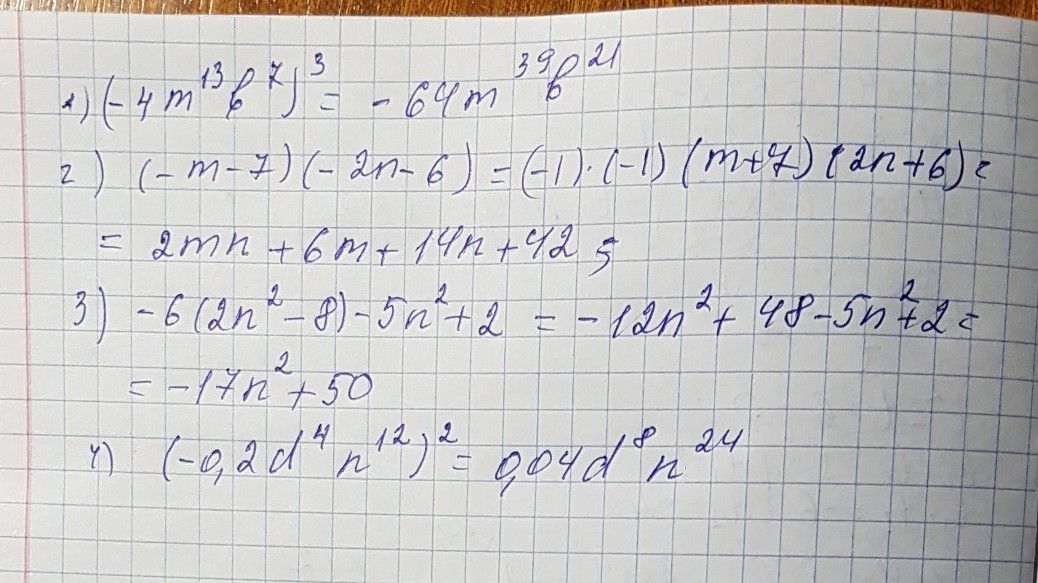 1) (-4m¹³b⁷)³ = -64m³⁹b²¹
2) (-m-7)(-2n-6) = (-1)·(-1)(m+7)(2n+6) =
= 2mn + 6m + 14n + 42;
3) -6(2n²-8)-5n²+2 = -12n² + 48 - 5n² + 2 =
= -17n² + 50
4) (-0,2d⁴n¹²)² = 0,04d⁸n²⁴